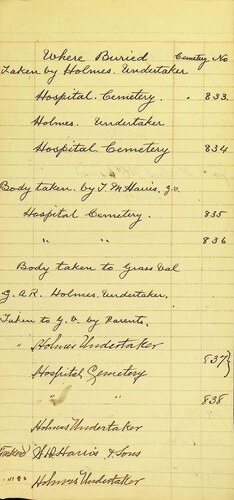 Where Buried Cemetery No
Taken by Holmes. Undertaker
Hospital. Cemetery. 833.
Holmes. Undertaker
Hospital Cemetery 834
Body taken. by T. M Harris, g.v.
Hospital Cemetery. 835
" " 836
Body taken to Grass Val
G. A R. Holmes. Undertaker.
Taken to G. V. by Parents.
" Holmes Undertaker
Hospital Cemetery 837
" " 838
Holmes Undertaker
W. D. Harris & Sons
Holmes Undertaker